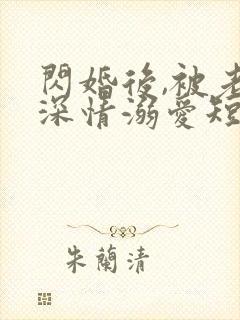 閃婚後,被老
深情溺愛短
朱蘭清